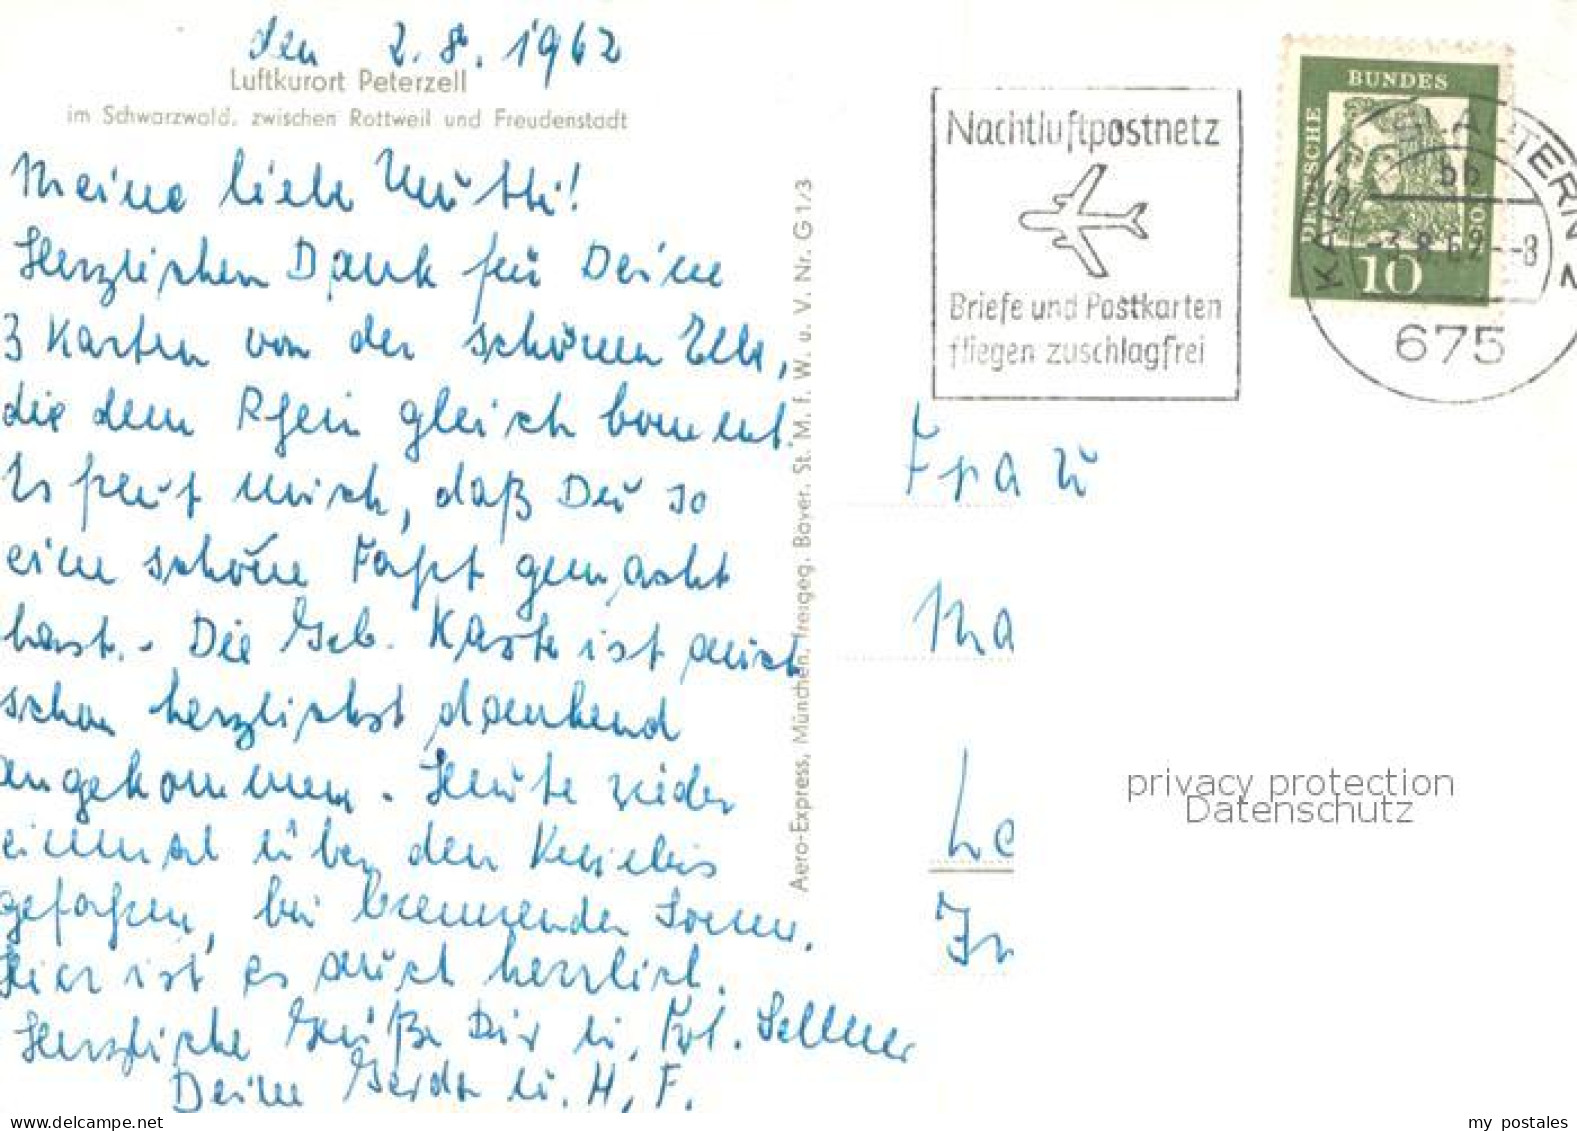 den 2.8.1962
Luftkurort Peterzell
im Schwarzwald, zwischen Rottweil und Freudenstadt
Meine liebe Mutti!
Herzlichen Dank für Deine
3 Karten von der schönen Elbe,
die dem Rhein gleich kommt.
Es freut mich, daß Du so
eine schöne Fahrt gemacht
hast. - Die Geb. Karte ist auch
schon herzlichst dankend
angekommen. Heute wieder
einmal über den Kniebis
gefahren, bei brennender Sonne.
Hier ist es auch herrlich.
Herzliche Grüße Dir u. Frl. Sellner
Deine Gerda u. H. F.
Aero-Express, München, freigeg. Bayer. St. M. f. W. u. V. Nr. G 1/3
Nachtluftpostnetz
Briefe und Postkarten
fliegen zuschlagfrei
DEUTSCHE BUNDESPOST
10
KAISERSLAUTERN 2
bb
-3.8.62--8
675
Frau
Ma
Le
In
privacy protection
Datenschutz
www.delcampe.net
my_postales